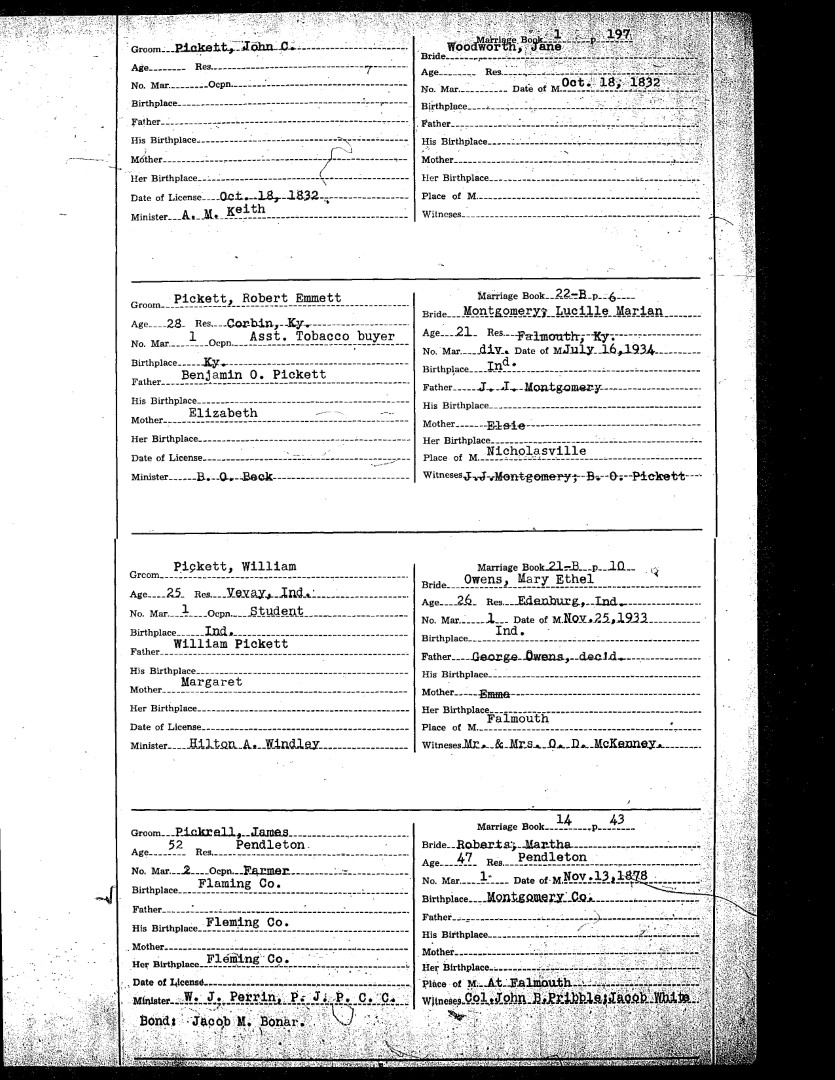 Groom Pickett, John C.
Age Res.
No. Mar. Ocpn.
Birthplace
Father
His Birthplace
Mother
Her Birthplace
Date of License Oct. 18, 1832
Minister A. M. Keith
Marriage Book 1 p 197
Bride Woodworth, Jane
Age Res.
No. Mar. Date of M. Oct. 18, 1832
Birthplace
Father
His Birthplace
Mother
Her Birthplace
Place of M.
Witnesses
Groom Pickett, Robert Emmett
Age 28 Res. Corbin, Ky.
No. Mar. 1 Ocpn. Asst. Tobacco buyer
Birthplace Ky.
Father Benjamin O. Pickett
His Birthplace
Mother Elizabeth
Her Birthplace
Date of License
Minister B. O. Beck
Marriage Book 22-B p 6
Bride Montgomery, Lucille Marian
Age 21 Res. Falmouth, Ky.
No. Mar. div. Date of M. July 16,1934
Birthplace Ind.
Father J. J. Montgomery
His Birthplace
Mother Elsie
Her Birthplace
Place of M. Nicholasville
Witnesses J.J.Montgomery; B. O. Pickett
Groom Pickett, William
Age 25 Res. Vevay, Ind.
No. Mar. 1 Ocpn. Student
Birthplace Ind.
Father William Pickett
His Birthplace
Mother Margaret
Her Birthplace
Date of License
Minister Hilton A. Windley
Marriage Book 21-B p 10
Bride Owens, Mary Ethel
Age 26 Res. Edenburg, Ind.
No. Mar. 1 Date of M. Nov.25,1933
Birthplace Ind.
Father George Owens, dec'd.
His Birthplace
Mother Emma
Her Birthplace
Place of M. Falmouth
Witnesses Mr. & Mrs. O. D. McKenney.
Groom Pickrell, James
Age 52 Res. Pendleton
No. Mar. 2 Ocpn. Farmer
Birthplace Flaming Co.
Father
His Birthplace Fleming Co.
Mother
Her Birthplace Fleming Co.
Date of License
Minister W. J. Perrin, P. J. P. C. C.
Bond: Jacob M. Bonar.
Marriage Book 14 p 43
Bride Roberts, Martha
Age 47 Res. Pendleton
No. Mar. 1 Date of M. Nov.13,1878
Birthplace Montgomery Co.
Father
His Birthplace
Mother
Her Birthplace
Place of M. At Falmouth
Witnesses Col.John B.Pribble;Jacob White